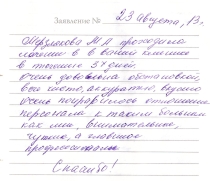 Заявление № 23 августа, 13г.
Мерзлякова М.И проходила
лечение в в вашей клинике
в течение 5 дней.
очень довольна обстановкой,
все чисто, аккуратно, вкусно
очень понравилось отношение
персонала к таким больным
как мы, внимательно,
чутко, а главное
профессионально
Спасибо!